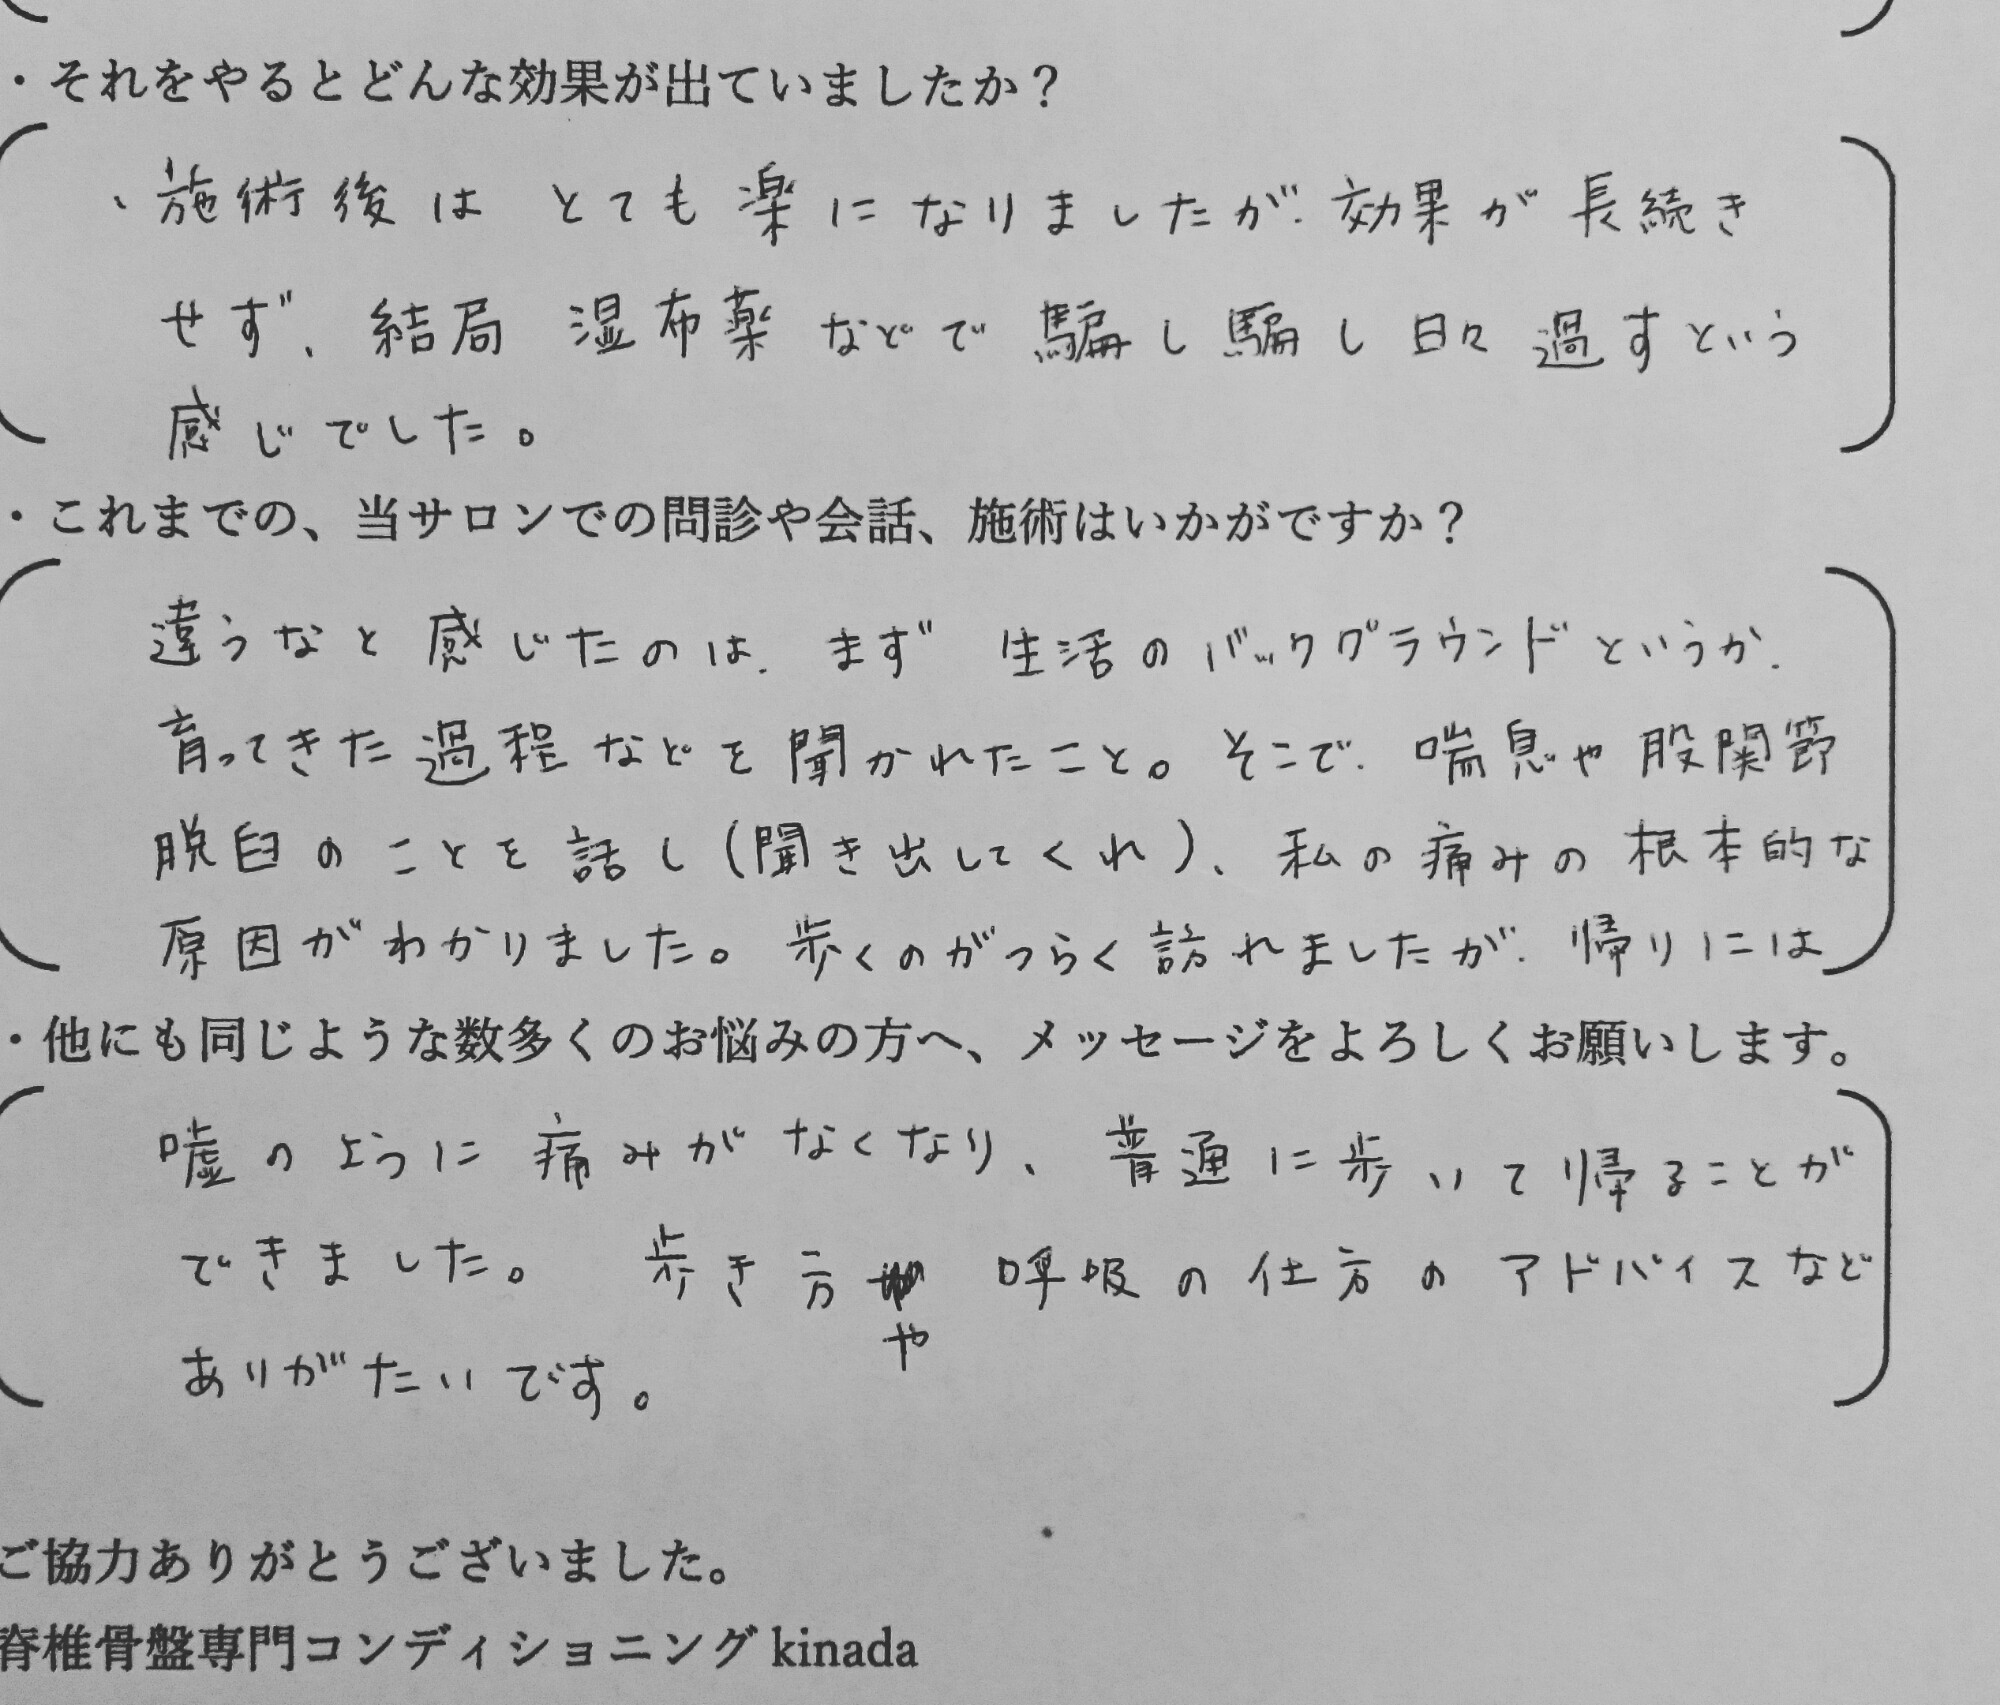 ・それをやるとどんな効果が出ていましたか？
、施術後は とても楽になりましたが、効果が長続き
せず、結局 湿布薬などで騙し騙し日々過すという
感じでした。
・これまでの、当サロンでの問診や会話、施術はいかがですか？
違うなと感じたのは、まず 生活のバックグラウンドというか、
育ってきた過程などを聞かれたこと。そこで、喘息や股関節
脱臼のことを話し(聞き出してくれ)、私の痛みの根本的な
原因がわかりました。歩くのがつらく訪れましたが、帰りには
・他にも同じような数多くのお悩みの方へ、メッセージをよろしくお願いします。
嘘のように痛みがなくなり、普通に歩いて帰ることが
できました。 歩き方や 呼吸の仕方のアドバイスなど
ありがたいです。
ご協力ありがとうございました。
脊椎骨盤専門コンディショニング kinada